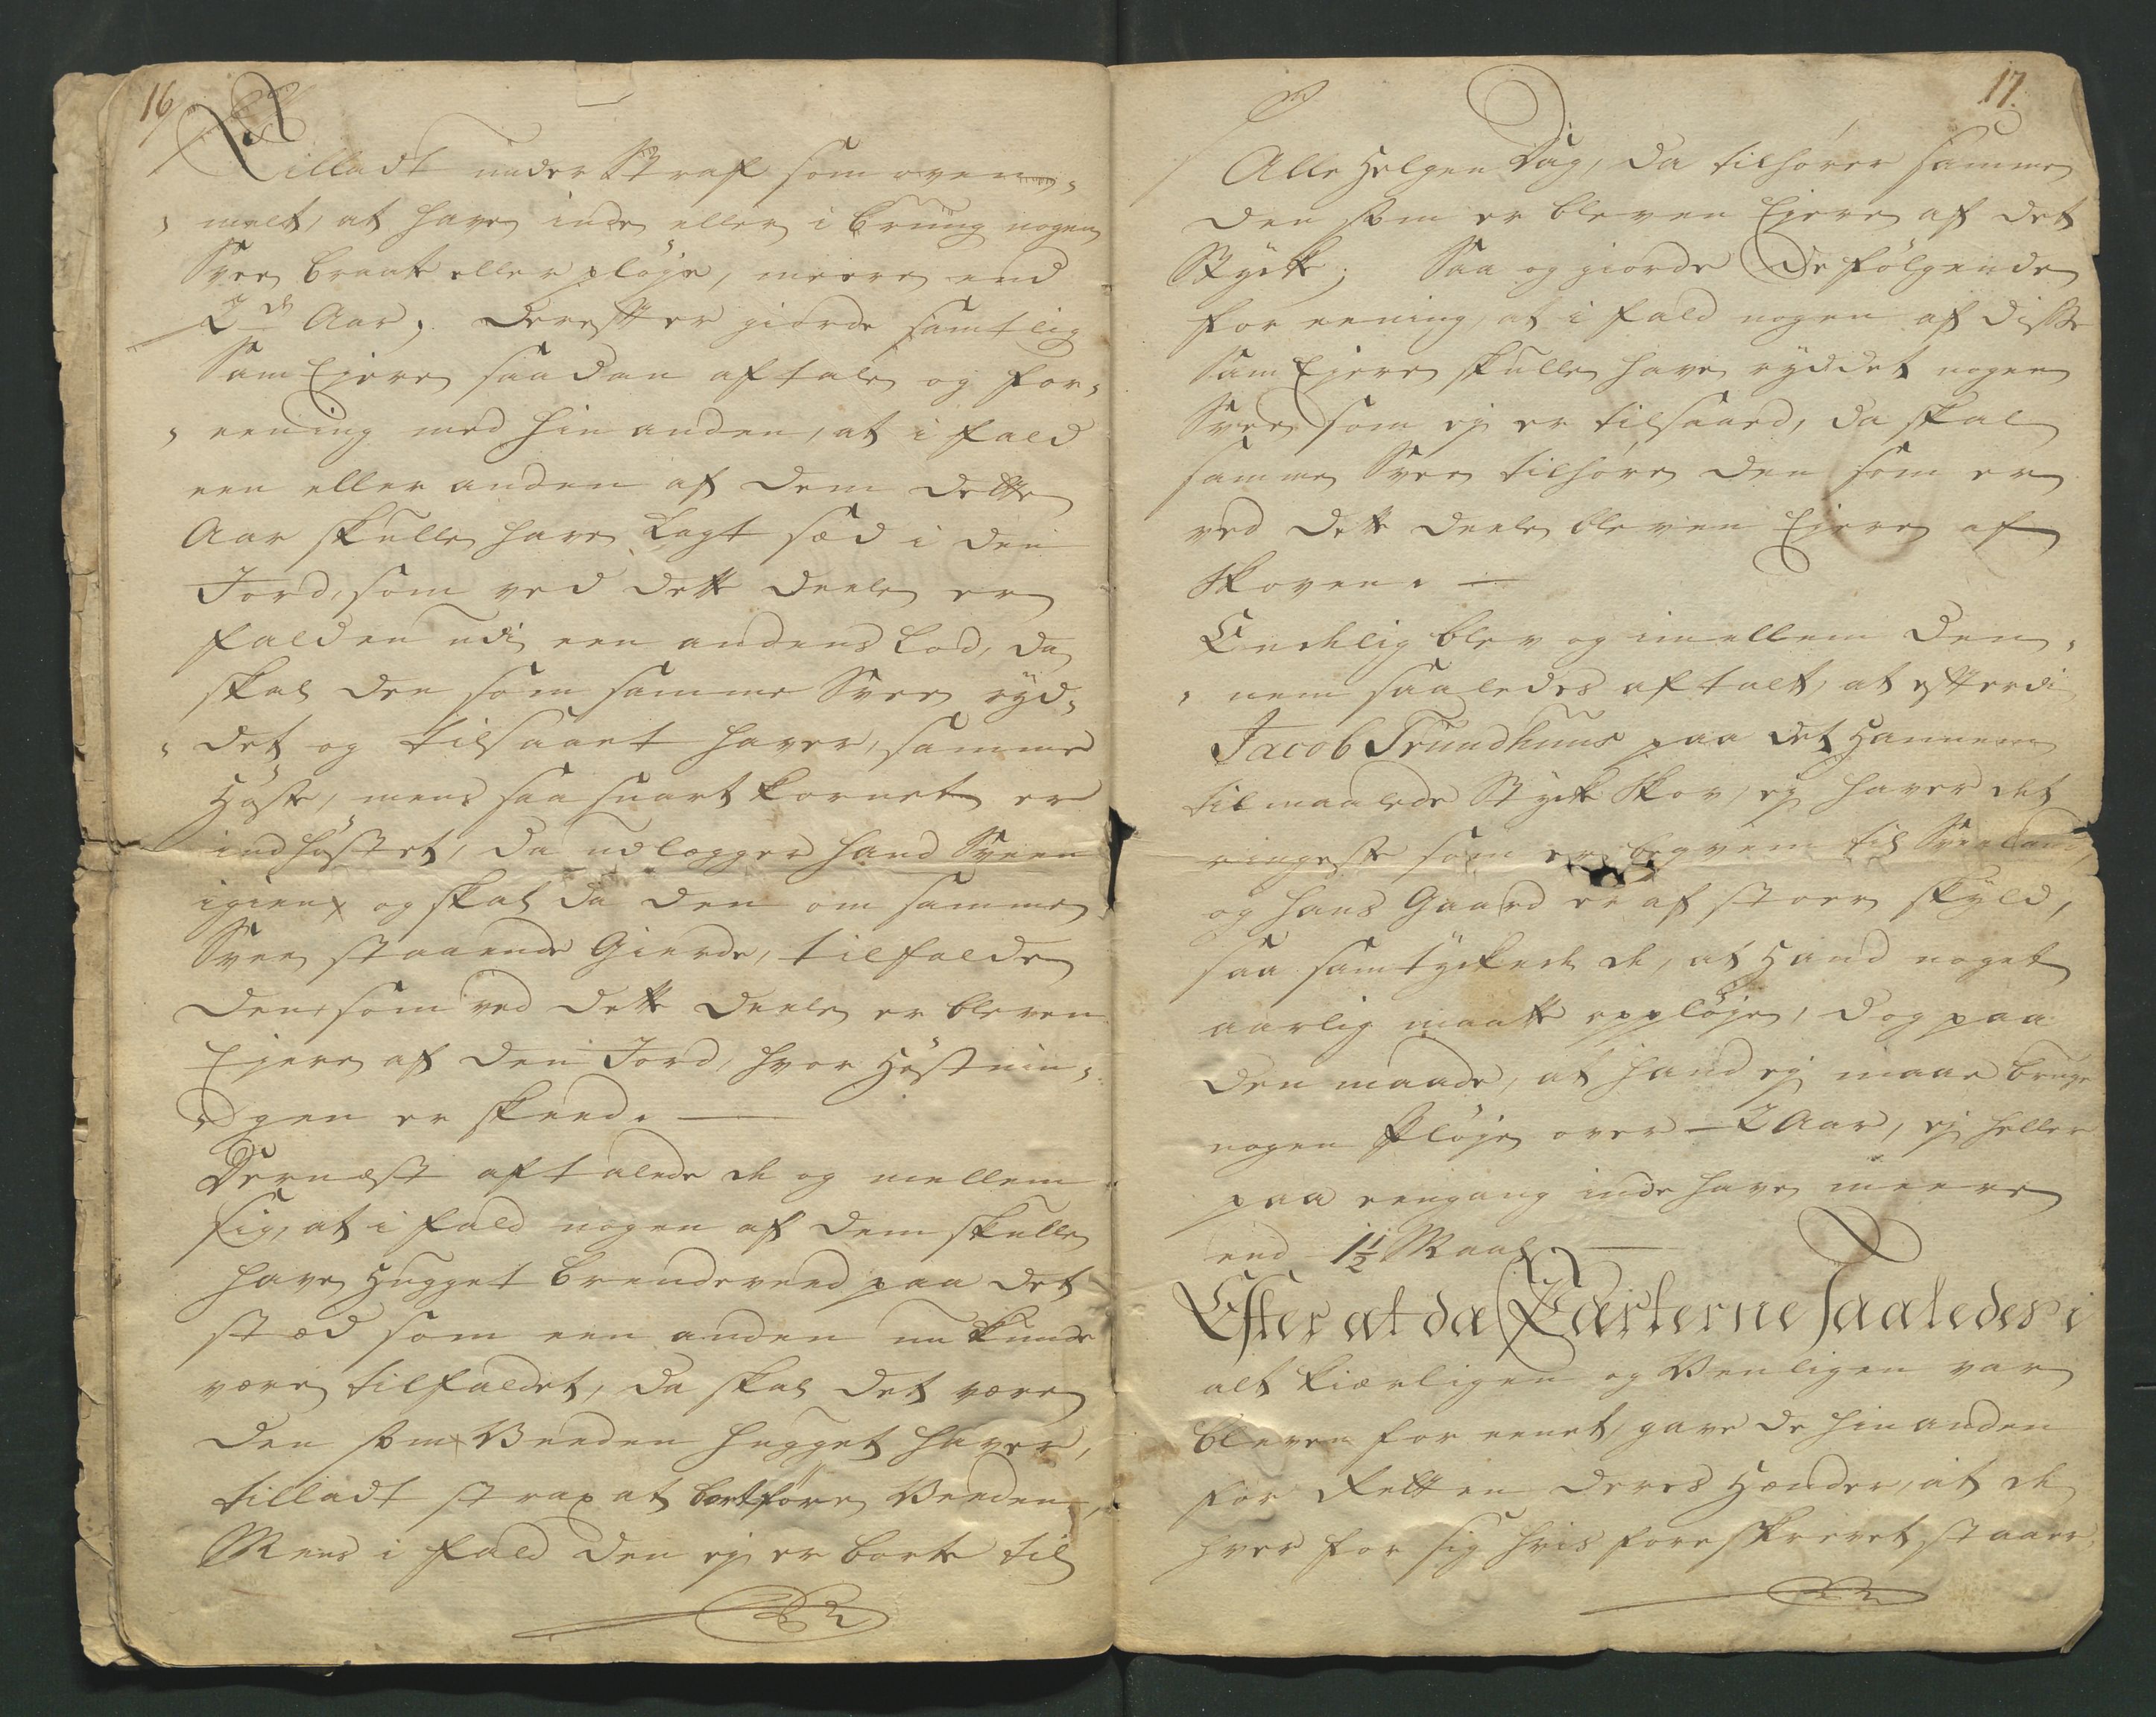 16
Tilladt under Straf som oven
melt, at have inde eller i brüug nogen
Svee braate eller pløye, meere end
2de Aar; Derefter giorde samtlig
SamEjere saadan aftale og for,
eening med hinanden, at i fald
een eller anden af dem dette
Aar skulle have Lagt sæd i den
Jord, som ved dette deele er
falden udi een andens Lod, da
skal den som samme Svee ryd,
det og tilsaaet haver, samme
Høste, mens saa snart kornet er
indhøstet, da udlegger hand Sveen
igien, og skal da den om samme
Svee staaende Gierde, tilfalde
den, som ved dette deele er bleven
Ejere af den Jord, hvor Høstnin,
gen er skeed. —
Dernæst aftalede de og mellem
sig, at i fald nogen af dem skulle
have Hugget brendeveed paa det
stæd som een anden nu kunde
være tilfaldet, da skal det være
den som Veeden hugget haver,
tilladt strax at bortføre Veeden,
Mens i fald den ej er borte til
17.
Alle Helgen Dag, da tilhører samme
den som er bleven Ejere af det
Stycke; Saa og giorde de følgende
foreening, at i fald nogen af disse
SamEjere skulle have ryddet nogen
Svee som ej er tilsaaed, da skal
samme Svee tilhøre den som er
ved dette deele bleven Ejere af
Skoven. —
Endelig blev og imellem den,
nem saaledes aftalt, at efterdi
Jacob Trundhuus paa det Hannem
tilmaalede Stycke Skov, ej haver det
ringeste som er beqvem til Sveeland,
og hans Gaard er af stoer skyld,
saa samtyckede de, at Hand noget
aarlig maatte oppløye, dog paa
den maade, at hand ej maae bruge
nogen Pløye over – 2 Aar, ej heller
paa eengang inde have meere
end 1½ Maal. —
Efter at da Parterne saaledes i
alt kiærligen og Venligen var
bleven foreenet, gave de hinanden
for Retten deres Hænder, at de
hver for sig hvis foreskrevet staaer,